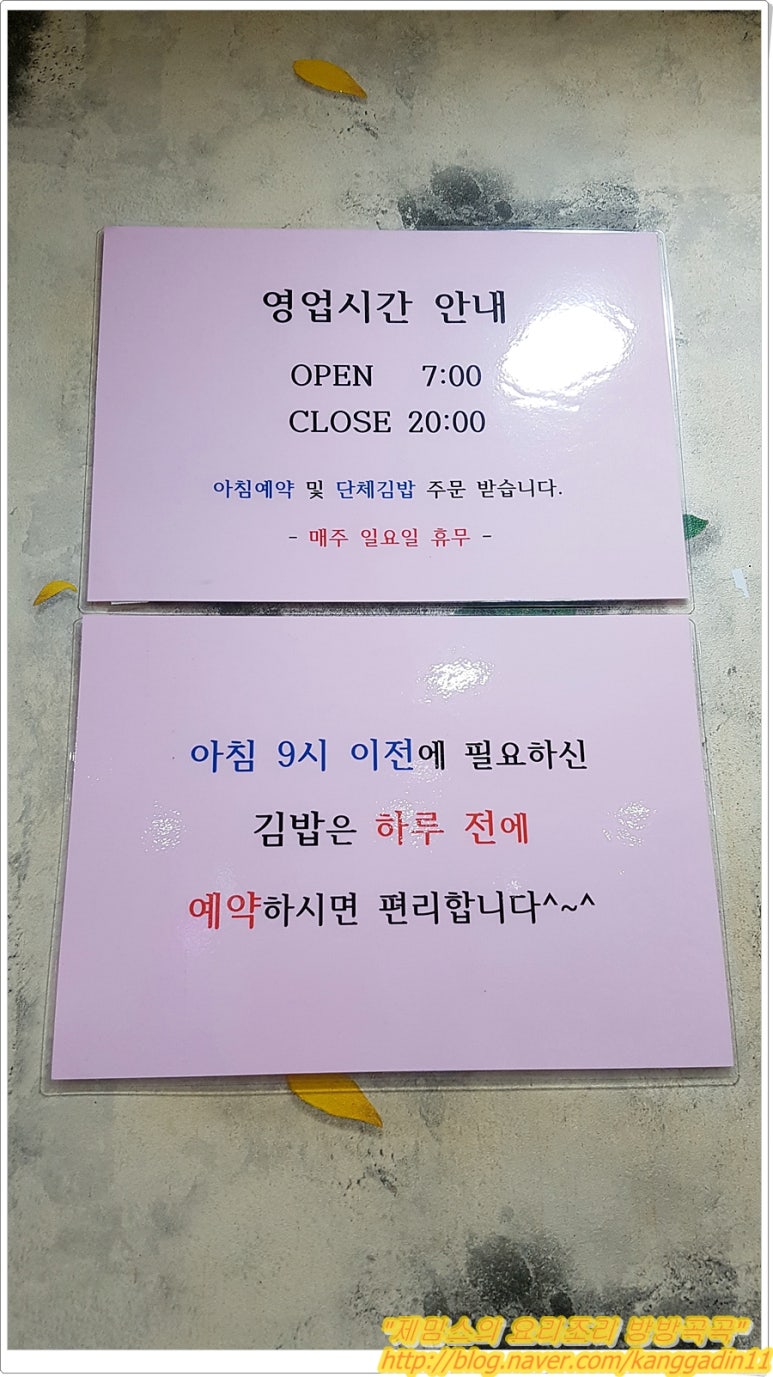 영업시간 안내
OPEN 7:00
CLOSE 20:00
아침예약 및 단체김밥 주문 받습니다.
- 매주 일요일 휴무 -
아침 9시 이전에 필요하신
김밥은 하루 전에
예약하시면 편리합니다^~^
"제맘스의 요리조리 방방곡곡"
http://blog.naver.com/kanggadin11